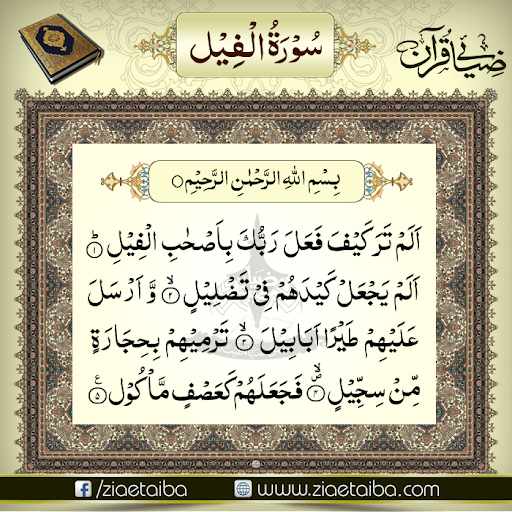 سُوْرَةُ الْفِيْل
ضیائے قرآن
بِسْمِ اللهِ الرَّحْمٰنِ الرَّحِيْمِ○
اَلَمْ تَرَ كَيْفَ فَعَلَ رَبُّكَ بِاَصْحٰبِ الْفِيْلِ ؕ۝۱
اَلَمْ يَجْعَلْ كَيْدَهُمْ فِيْ تَضْلِيْلٍ ۙ۝۲ وَّ اَرْسَلَ
عَلَيْهِمْ طَيْرًا اَبَابِيْلَ ۙ۝۳ تَرْمِيْهِمْ بِحِجَارَةٍ
مِّنْ سِجِّيْلٍ ۪ۙ۝۴ فَجَعَلَهُمْ كَعَصْفٍ مَّاْكُوْلٍ ۝۵ ع
/ziaetaiba
www.ziaetaiba.com